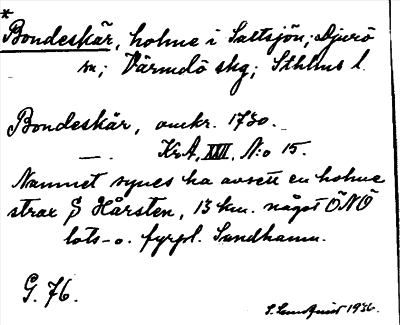 *
Bondeskär, holme i Saltsjön; Djurö
sn; Värmdö skg; Sthlms l.
Bondeskär, omkr. 1730.
— . KrA, XXII, N:o 15.
Namnet synes ha avsett en holme
strax S Hårsten, 13 km. något ÖNÖ
lots- o. fyrpl. Sandhamn.
G. 76.
S. Lundquist 1936.